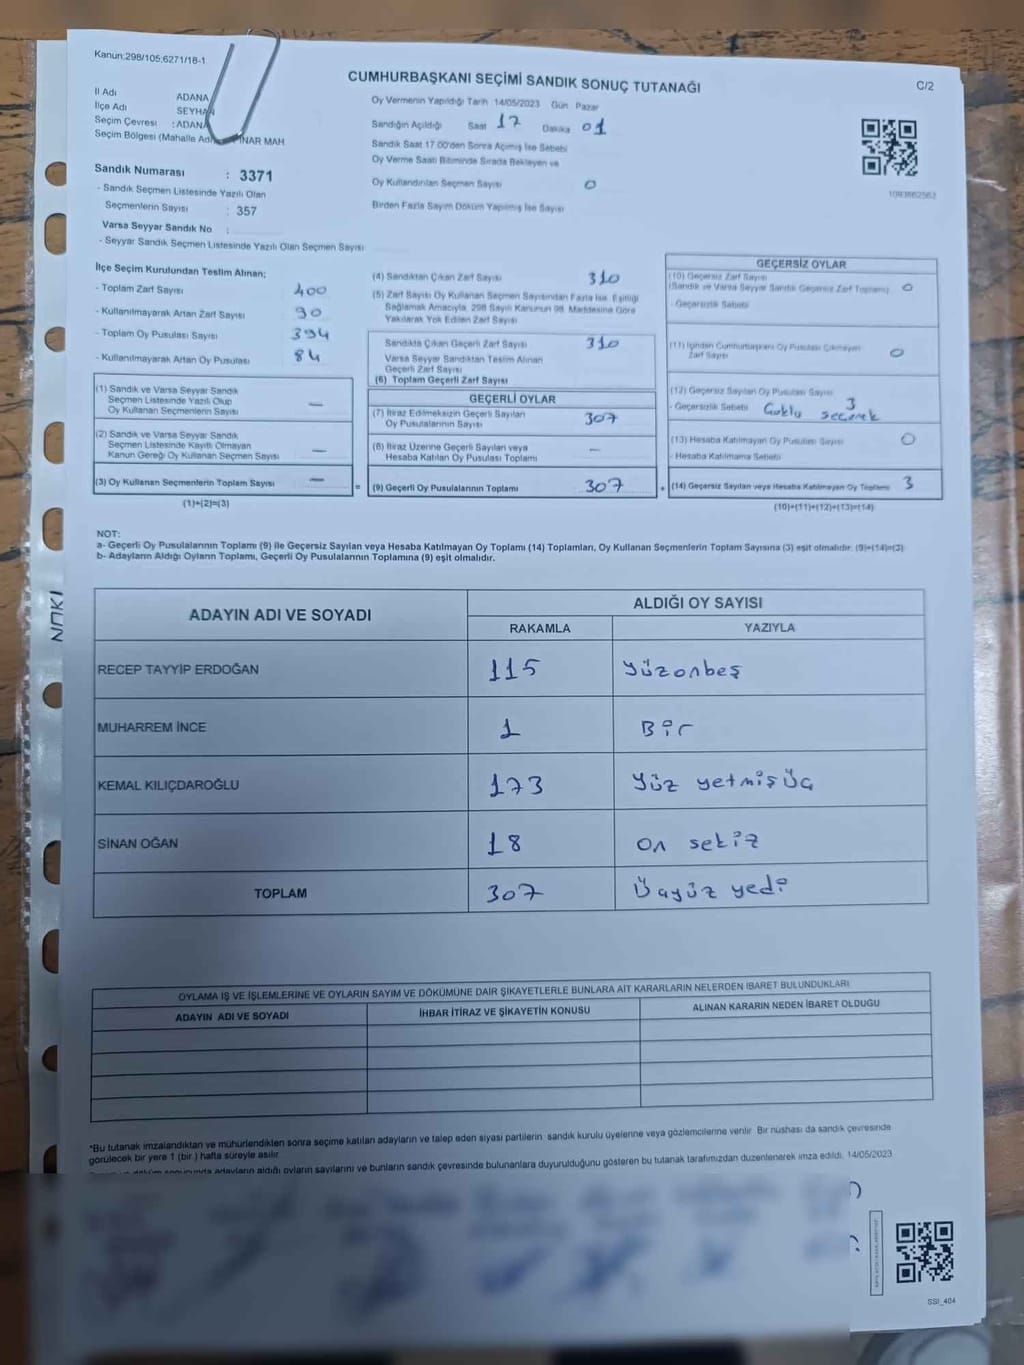 Kanun:298/105;6271/18-1
CUMHURBAŞKANI SEÇİMİ SANDIK SONUÇ TUTANAĞI
C/2
İl Adı ADANA
İlçe Adı SEYHAN
Seçim Çevresi :ADANA
Seçim Bölgesi (Mahalle PINAR MAH
Oy Vermenin Yapıldığı Tarih 14/05/2023 Gün Pazar
Sandığın Açıldığı Saat 17 Dakika 01
Sandık Saat 17.00'den Sonra Açımış İse Sebebi
Oy Verme Saati Bitiminde Sırada Bekleyen ve
Oy Kullandırılan Seçmen Sayısı 0
Birden Fazla Sayım Döküm Yapılmış İse Sayısı
1093862563
Sandık Numarası : 3371
- Sandık Seçmen Listesinde Yazılı Olan
Seçmenlerin Sayısı : 357
Varsa Seyyar Sandık No :
- Seyyar Sandık Seçmen Listesinde Yazılı Olan Seçmen Sayısı
İlçe Seçim Kurulundan Teslim Alınan;
- Toplam Zarf Sayısı 400
- Kullanılmayarak Artan Zarf Sayısı 90
- Toplam Oy Pusulası Sayısı 394
- Kullanılmayarak Artan Oy Pusulası 84
(1) Sandık ve Varsa Seyyar Sandık
Seçmen Listesinde Yazılı Olup
Oy Kullanan Seçmenlerin Sayısı —
(2) Sandık ve Varsa Seyyar Sandık
Seçmen Listesinde Kayıtlı Olmayan
Kanun Gereği Oy Kullanan Seçmen Sayısı —
(3) Oy Kullanan Seçmenlerin Toplam Sayısı —
(1)+(2)=(3)
(4) Sandıktan Çıkan Zarf Sayısı 310
(5) Zarf Sayısı Oy Kullanan Seçmen Sayısından Fazla İse, Eşitliği
Sağlamak Amacıyla, 298 Sayılı Kanunun 98. Maddesine Göre
Yakılarak Yok Edilen Zarf Sayısı
Sandıkta Çıkan Geçerli Zarf Sayısı 310
Varsa Seyyar Sandıktan Teslim Alınan
Geçerli Zarf Sayısı
(6) Toplam Geçerli Zarf Sayısı
GEÇERLİ OYLAR
(7) İtiraz Edilmeksizin Geçerli Sayılan
Oy Pusulalarının Sayısı 307
(8) İtiraz Üzerine Geçerli Sayılan veya
Hesaba Katılan Oy Pusulası Toplamı —
= (9) Geçerli Oy Pusulalarının Toplamı 307
GEÇERSİZ OYLAR
(10) Geçersiz Zarf Sayısı
(Sandık ve Varsa Seyyar Sandık Geçersiz Zarf Toplamı) 0
- Geçersizlik Sebebi
(11) İçinden Cumhurbaşkanı Oy Pusulası Çıkmayan
Zarf Sayısı 0
(12) Geçersiz Sayılan Oy Pusulası Sayısı 3
- Geçersizlik Sebebi Çoklu seçenek
(13) Hesaba Katılmayan Oy Pusulası Sayısı 0
- Hesaba Katılmama Sebebi
+ (14) Geçersiz Sayılan veya Hesaba Katılmayan Oy Toplamı 3
(10)+(11)+(12)+(13)=(14)
NOT:
a- Geçerli Oy Pusulalarının Toplamı (9) ile Geçersiz Sayılan veya Hesaba Katılmayan Oy Toplamı (14) Toplamları, Oy Kullanan Seçmenlerin Toplam Sayısına (3) eşit olmalıdır. (9)+(14)=(3)
b- Adayların Aldığı Oyların Toplamı, Geçerli Oy Pusulalarının Toplamına (9) eşit olmalıdır.
ADAYIN ADI VE SOYADI
ALDIĞI OY SAYISI
RAKAMLA YAZIYLA
RECEP TAYYİP ERDOĞAN 115 Yüzonbeş
MUHARREM İNCE 1 Bir
KEMAL KILIÇDAROĞLU 173 Yüz yetmişüç
SİNAN OĞAN 18 On sekiz
TOPLAM 307 Üçyüz yedi
OYLAMA İŞ VE İŞLEMLERİNE VE OYLARIN SAYIM VE DÖKÜMÜNE DAİR ŞİKAYETLERLE BUNLARA AİT KARARLARIN NELERDEN İBARET BULUNDUKLARI
ADAYIN ADI VE SOYADI İHBAR İTİRAZ VE ŞİKAYETİN KONUSU ALINAN KARARIN NEDEN İBARET OLDUĞU
*Bu tutanak imzalandıktan ve mühürlendikten sonra seçime katılan adayların ve talep eden siyasi partilerin sandık kurulu üyelerine veya gözlemcilerine verilir. Bir nüshası da sandık çevresinde
görülecek bir yere 1 (bir) hafta süreyle asılır.
adayların aldığı oyların sayılarını ve bunların sandık çevresinde bulunanlara duyurulduğunu gösteren bu tutanak tarafımızdan düzenlenerek imza edildi. 14/05/2023
SSI_404